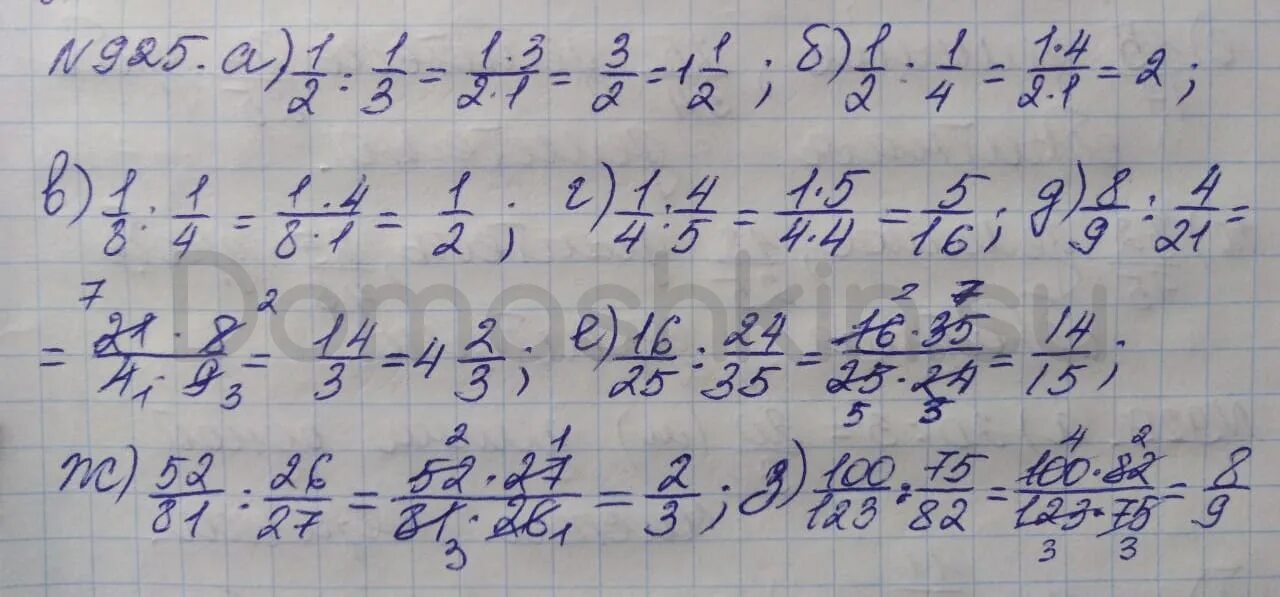 N925. а) 1/2 : 1/3 = 1·3/2·1 = 3/2 = 1 1/2 ; б) 1/2 : 1/4 = 1·4/2·1 = 2 ;
в) 1/8 : 1/4 = 1·4/8·1 = 1/2 ; г) 1/4 : 4/5 = 1·5/4·4 = 5/16 ; д) 8/9 : 4/21 =
= 7 21 · 8 2 / 4 1 · 9 3 = 14/3 = 4 2/3 ; е) 16/25 : 24/35 = 16 2 · 35 7 / 25 5 · 24 3 = 14/15 ;
ж) 52/81 : 26/27 = 52 2 · 27 1 / 81 3 · 26 1 = 2/3 ; з) 100/123 : 75/82 = 100 4 · 82 2 / 123 3 · 75 3 = 8/9
Domashkin.su